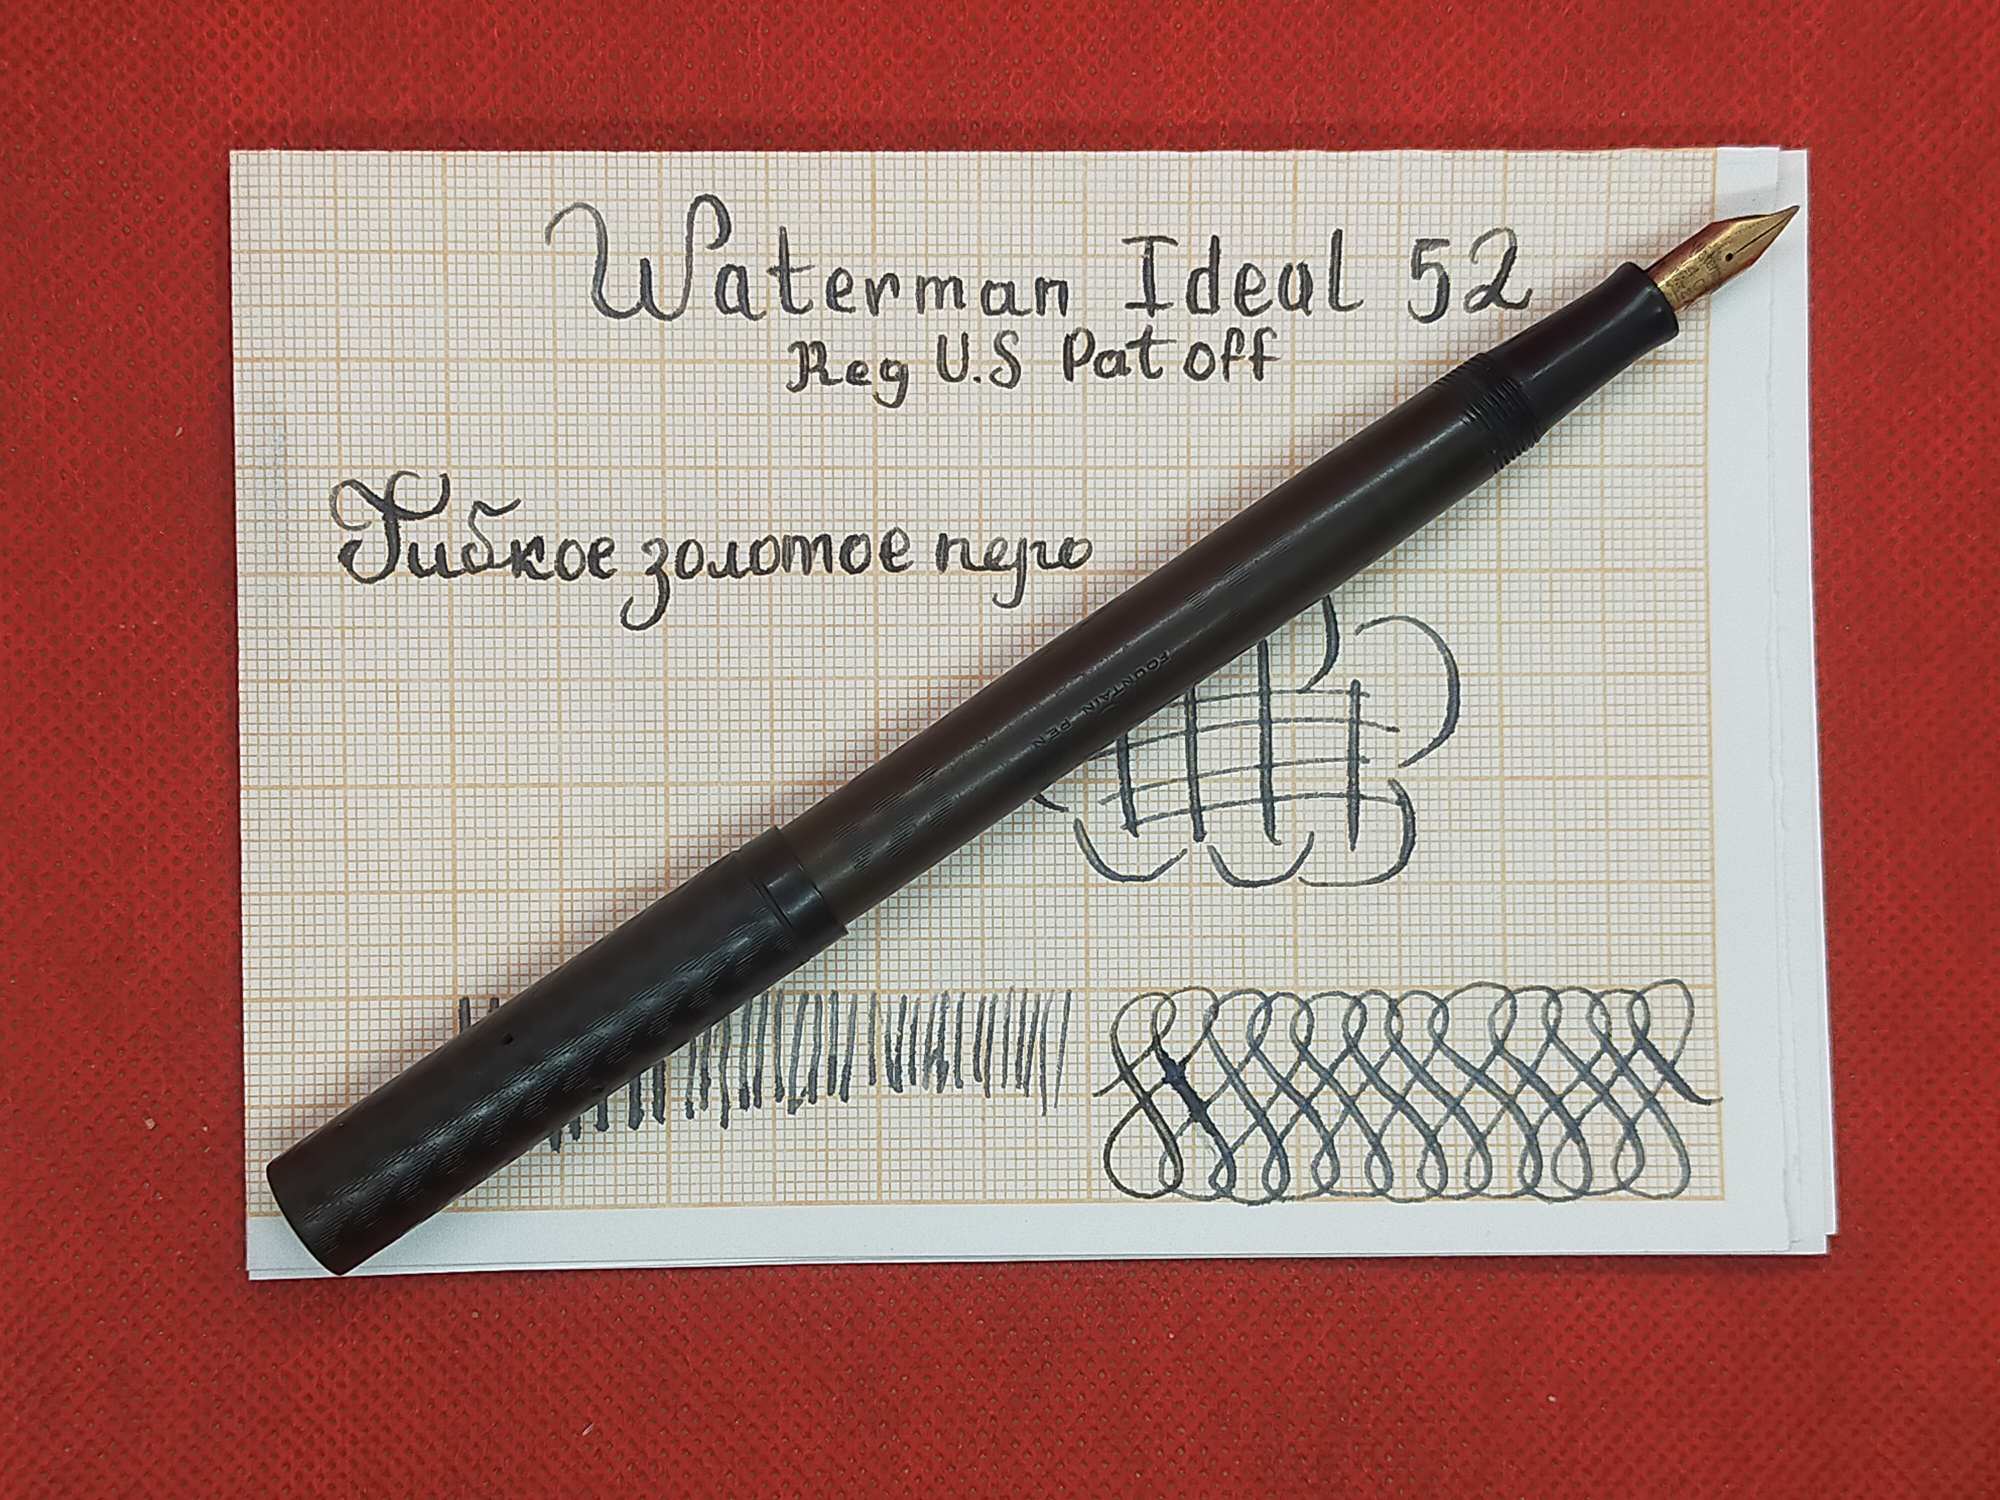 Waterman Ideal 52
Reg U.S Pat off
Гибкое золотое перо
FOUNTAIN PEN